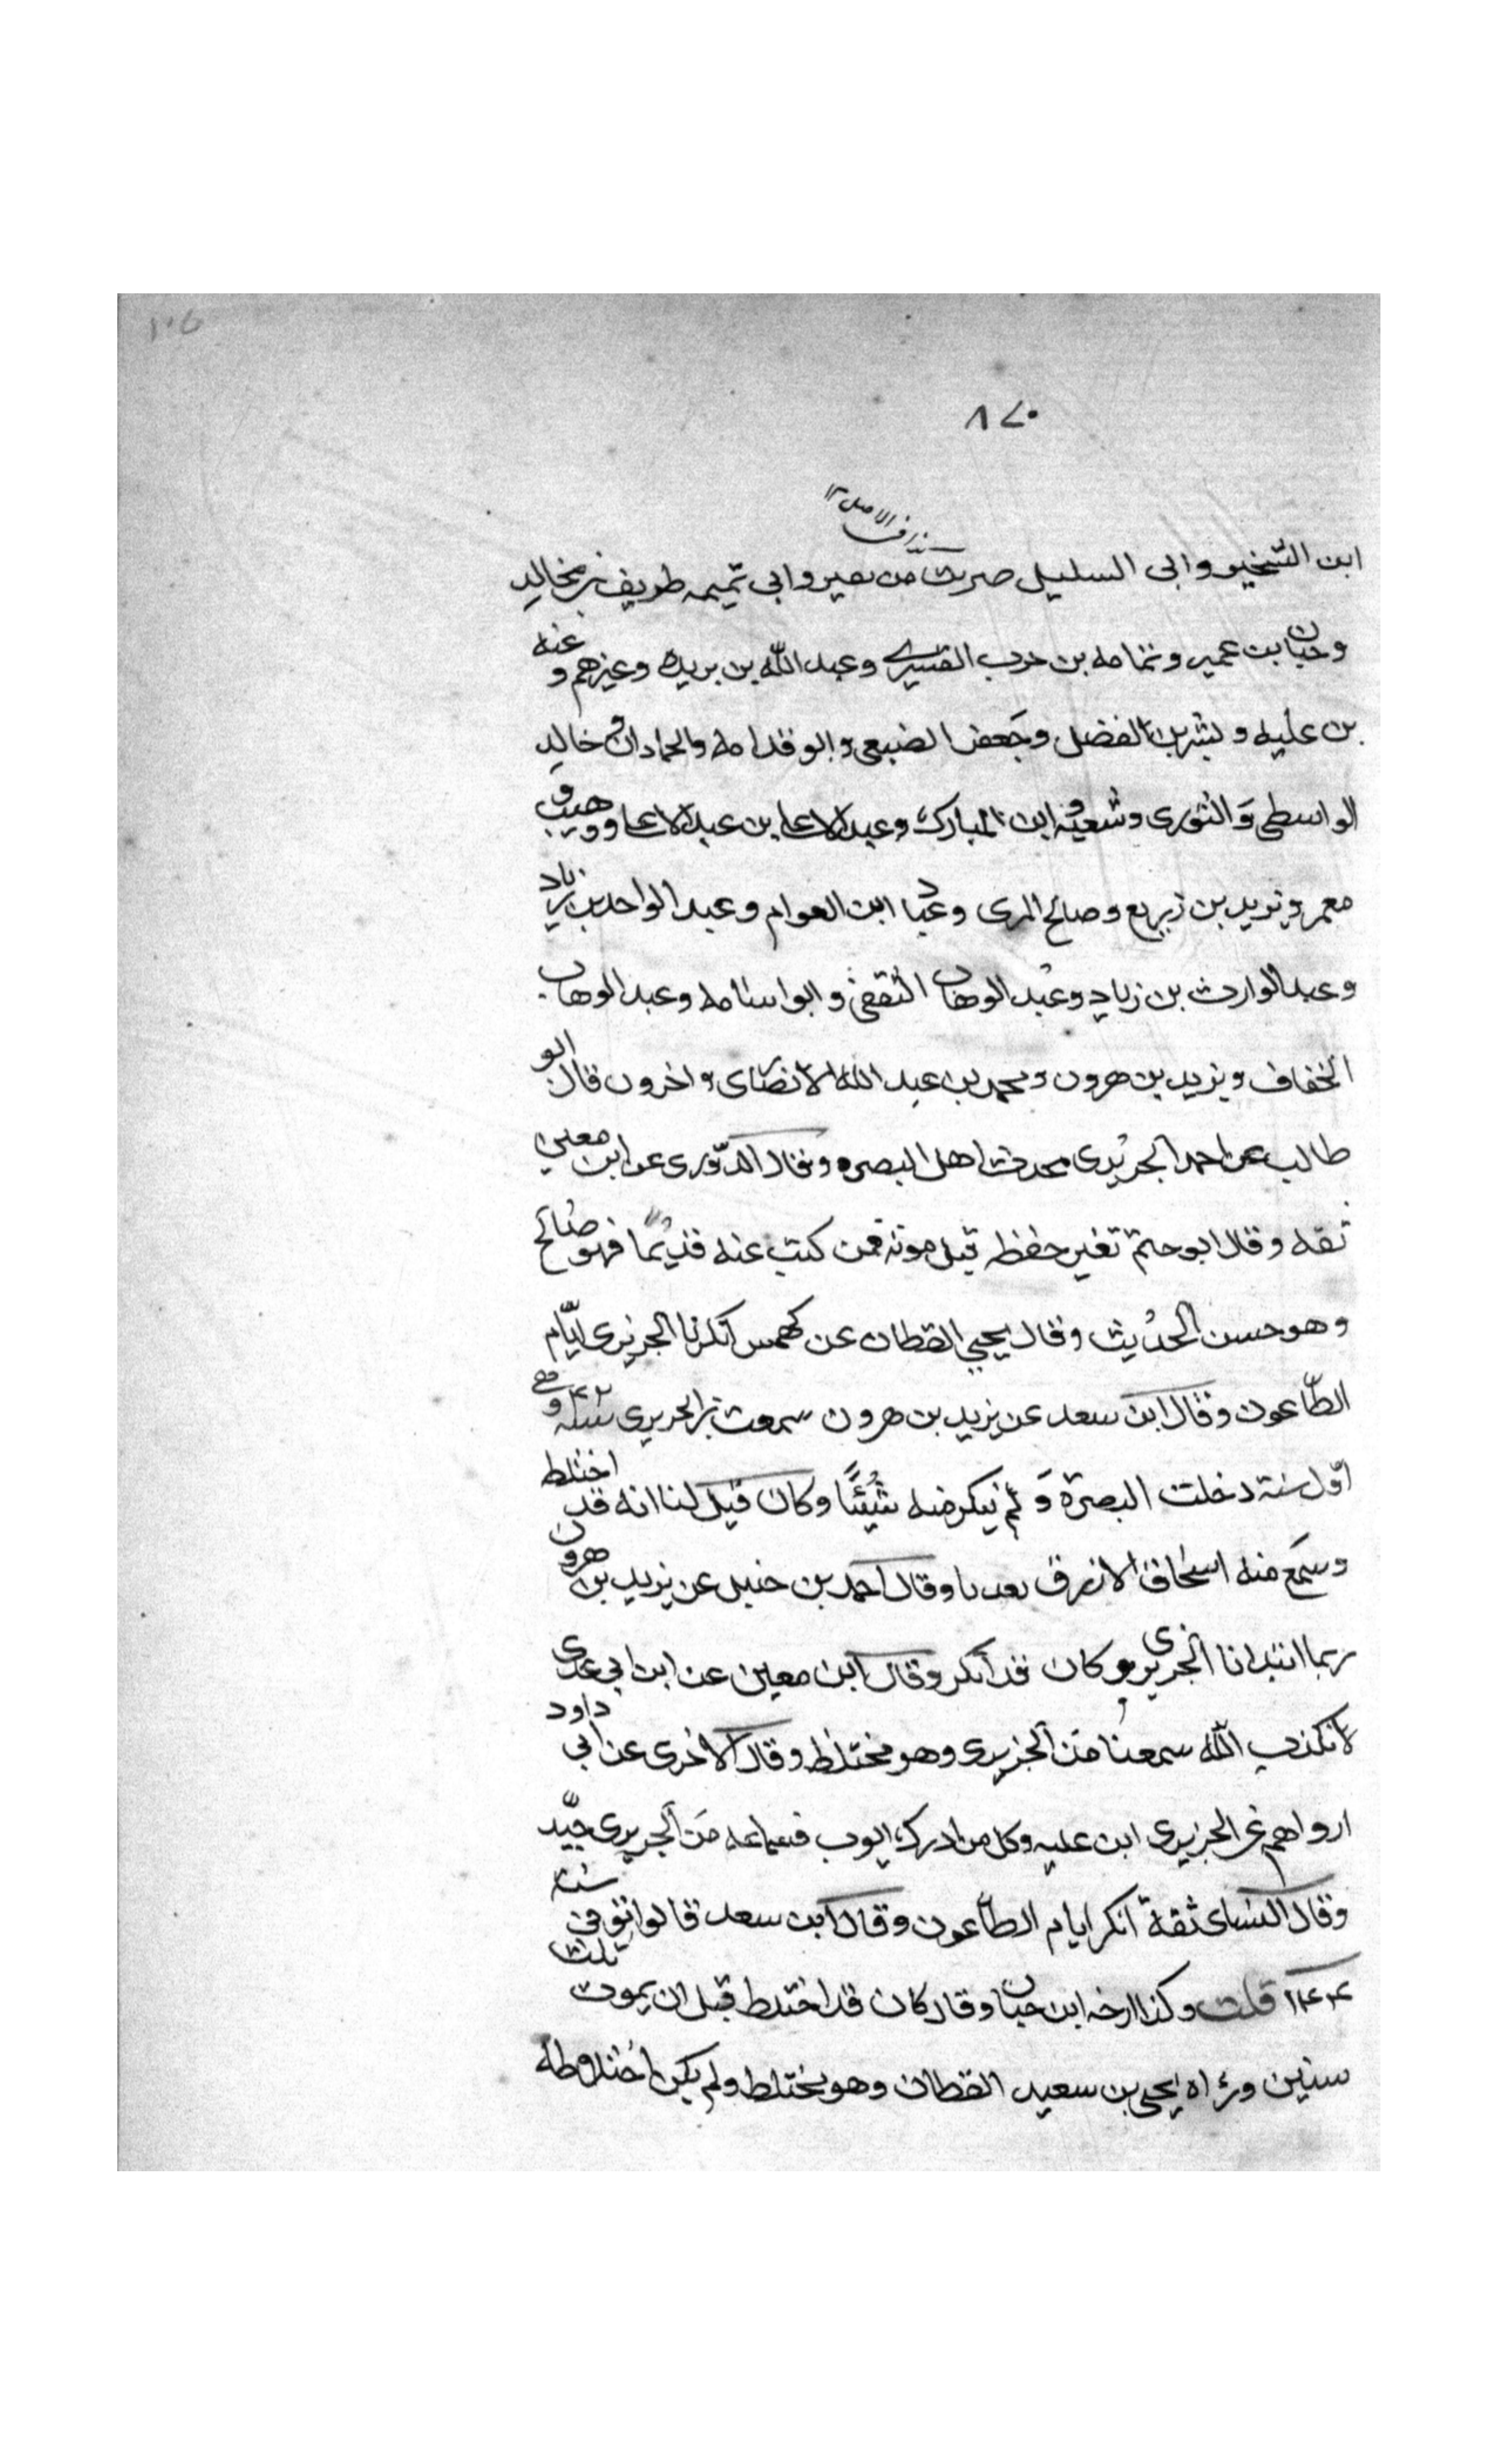 ٨٧٠
ابن الشخير وابى السليل صريب من نعير وابى تميمه طريف بن مخالد
وحبان بن عمير وثمامه بن حرب القشيرى وعبد الله بن بريده وغيرهم وعنه
بن عليه وبشر بن المفضل وجعفر الضبعى وابو قدامه والحمادان وخالد
الواسطى والثورى وشعبه وابن المبارك وعبد الاعلى بن عبد الاعلى ووهيب و
معمر ويزيد بن زريع وصالح المرى وعباد ابن العوام وعبد الواحد بن زياد
وعبد الوارث بن زياد وعبد الوهاب الثقفى وابو اسامه وعبد الوهاب
الخفاف ويزيد بن هرون ومحمد بن عبد الله الانصارى واخرون قال ابو
طالب عن احمد الجريرى محدث اهل البصره وقال الدورى عن ابن معين
ثقه وقال ابو حتم تغير حفظه قبل موته فمن كتب عنه قديمًا فهو صالح
وهو حسن الحديث وقال يحيى القطان عن كهمس انكرنا الجريرى ايّام
الطّاعون وقال ابن سعد عن يزيد بن هرون سمعت من الجريرى سنة ١٤٢ وهى
اوّل سنة دخلت البصرة وَلم ينكر منه شيئًا وكان قيل لنا انه قد اختلط
وسمع منه اسحاق الازرق بعدنا وقال احمد بن حنبل عن يزيد بن هرون
ربما ابتدانا الجريرى وكان قد انكر وقال ابن معين عن ابن ابى عدى
لا نكذب الله سمعنا من الجريرى وهو مختلط وقال الاخرى عن ابى داود
ارواهم عن الجريرى ابن عليه وكل من ادرك ايوب فسماعه من الجريرى جيّد
وقال النساى ثقة انكر ايام الطاعون وقال ابن سعد قالوا توفى سنة
١٤٤ قلت وكذا ارخه ابن حبان وقال كان قد اختلط قبل ان يموت ثلث
سنين وراه يحيى بن سعيد القطان وهو مختلط ولم يكن اختلاطه